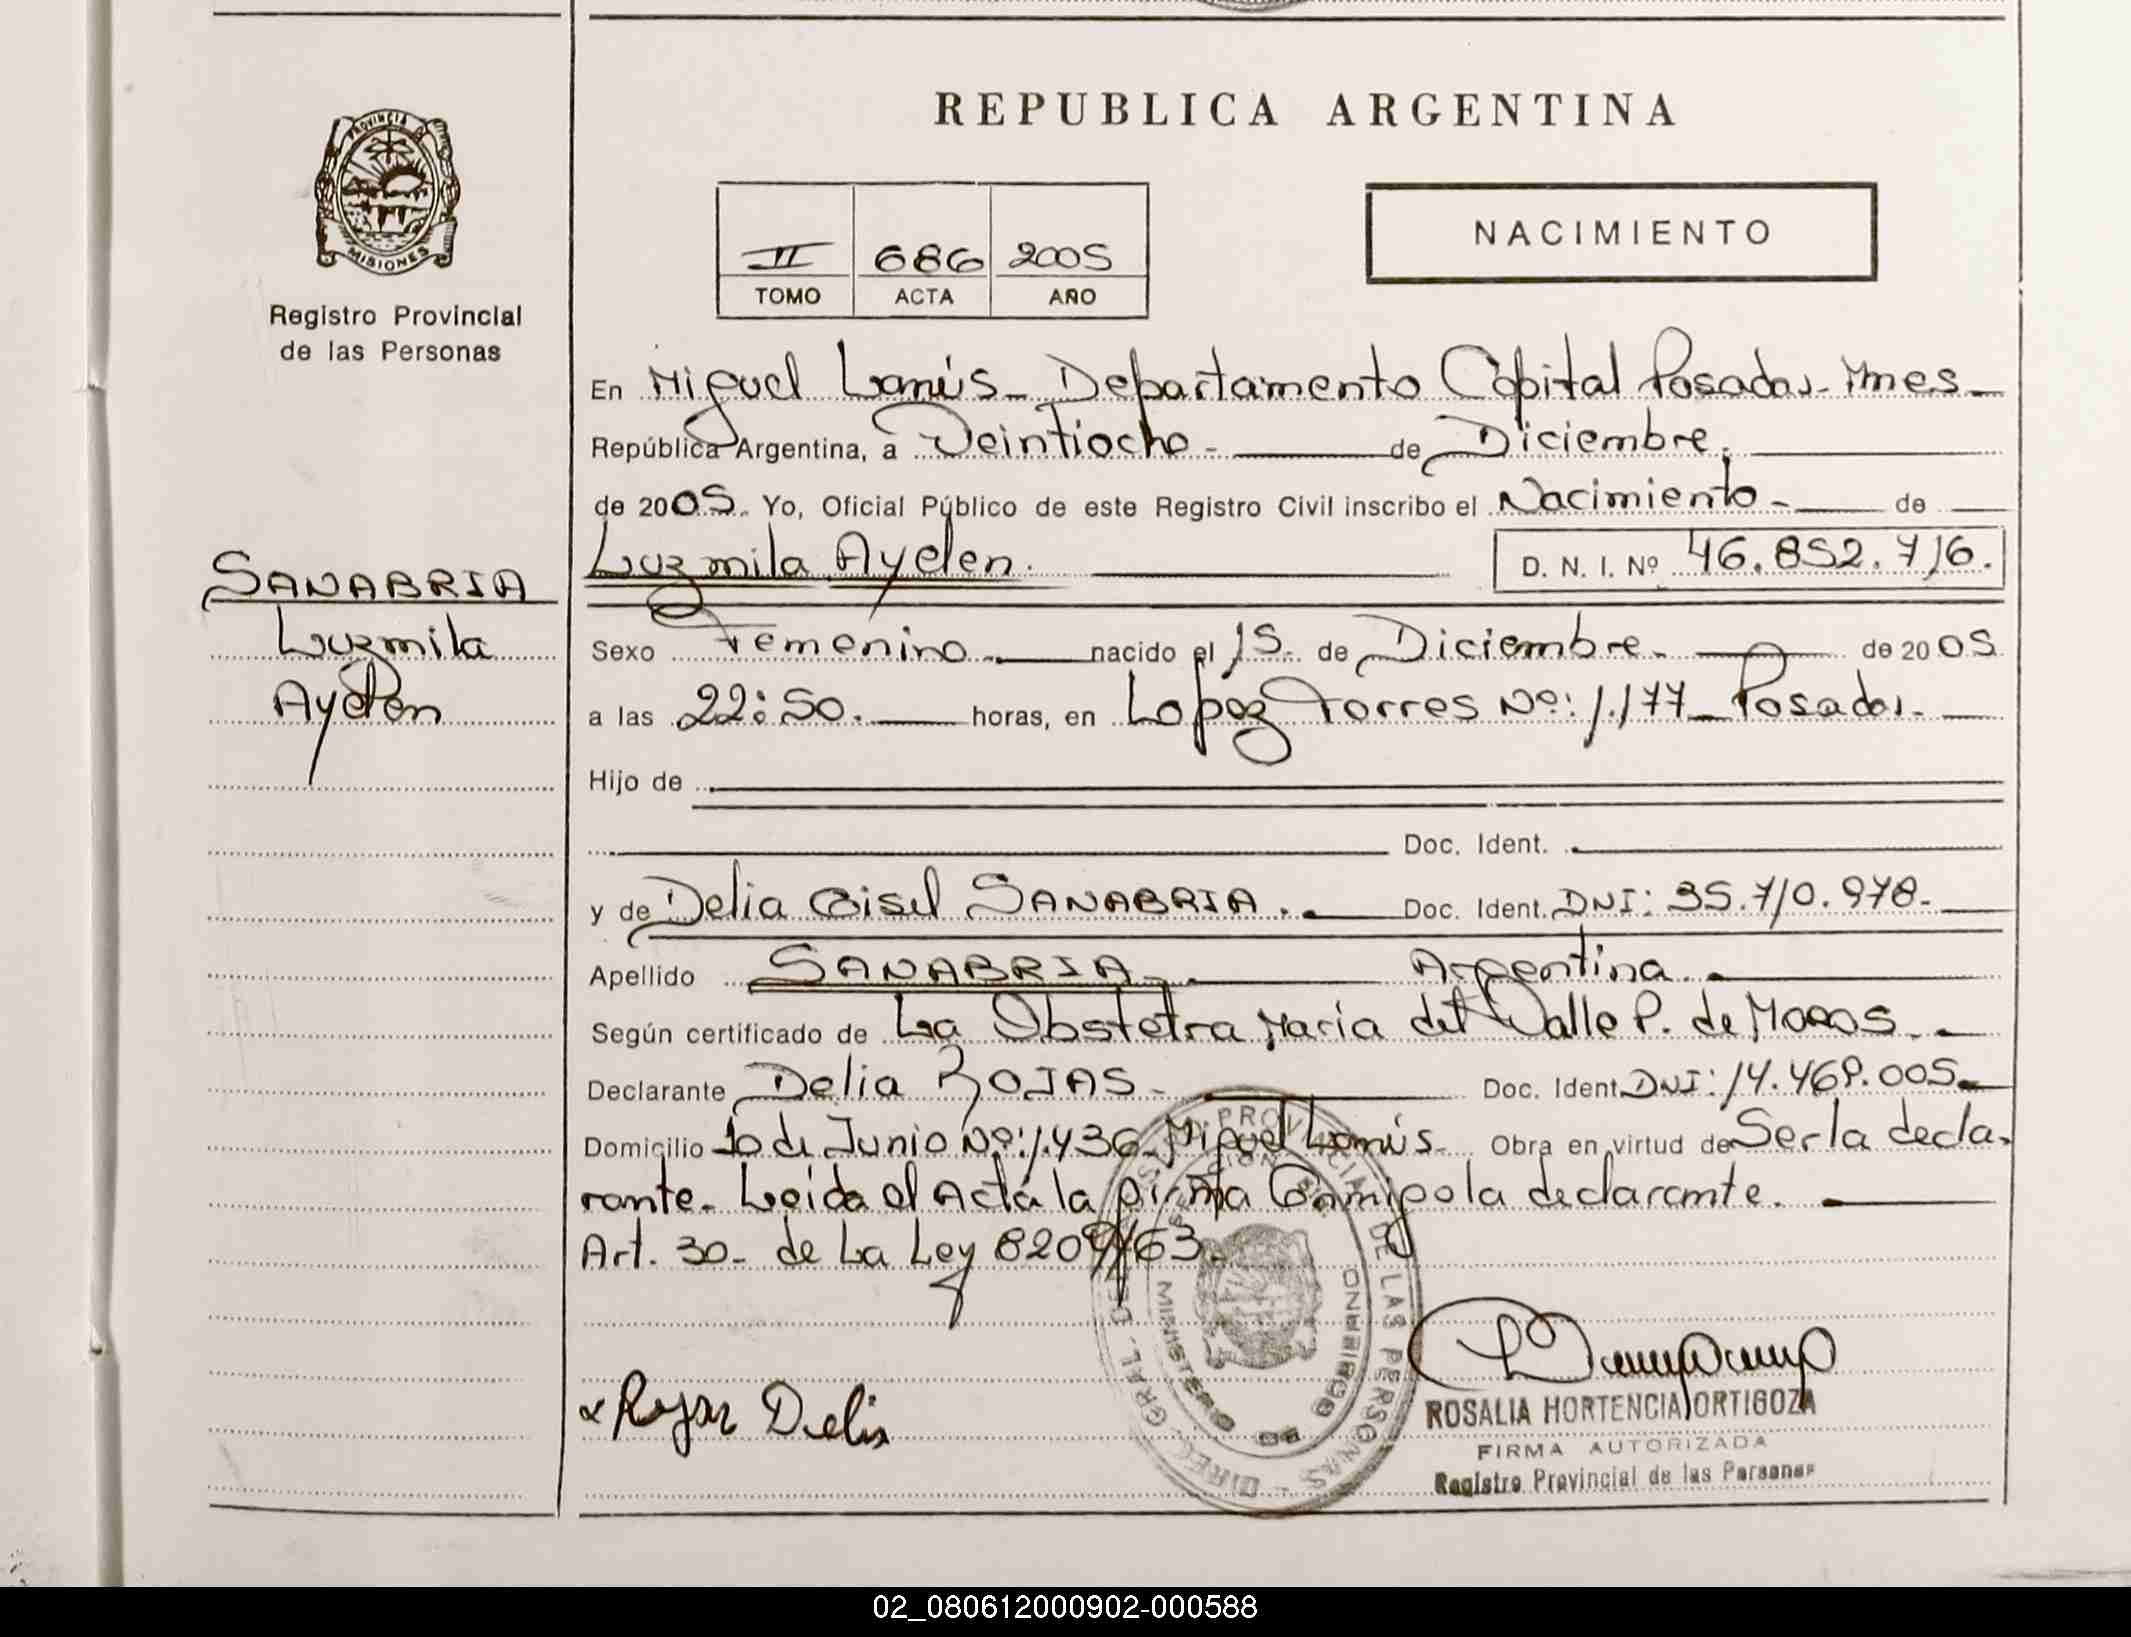 REPUBLICA ARGENTINA
PROVINCIA DE
MISIONES
Registro Provincial
de las Personas
II 686 2005
TOMO ACTA AÑO
NACIMIENTO
En Miguel Lanús - Departamento Capital Posadas - Mnes -
República Argentina, a Veintiocho - de Diciembre.
de 2005. Yo, Oficial Público de este Registro Civil inscribo el Nacimiento - de
Luzmila Ayelen. D. N. I. Nº 46.852.716.
SANABRIA
Luzmila
Ayelen
Sexo Femenino - nacido el 15. de Diciembre - de 2005
a las 22:50. horas, en Lopez Torres Nº: 1.177 - Posadas -
Hijo de
Doc. Ident.
y de Delia Gisel SANABRIA. Doc. Ident. DNI: 35.710.978.-
Apellido SANABRIA - Argentina
Según certificado de La Obstetra Maria del Valle P. de Moros.
Declarante Delia ROJAS - Doc. Ident. DNI: 14.469.005.
Domicilio 10 de Junio Nº: 1.436 - Miguel Lanús - Obra en virtud de Ser la decla-
rante. Leida el Acta la firma Conmigo la declarante.
Art. 30 - de La Ley 8209/63.
Rojas Delia
DIREC. GRAL. DEL PROVINCIAL DE LAS PERSONAS
MINISTERIO DE GOBIERNO
ROSALIA HORTENCIA ORTIGOZA
FIRMA AUTORIZADA
Registro Provincial de las Personas
02_080612000902-000588